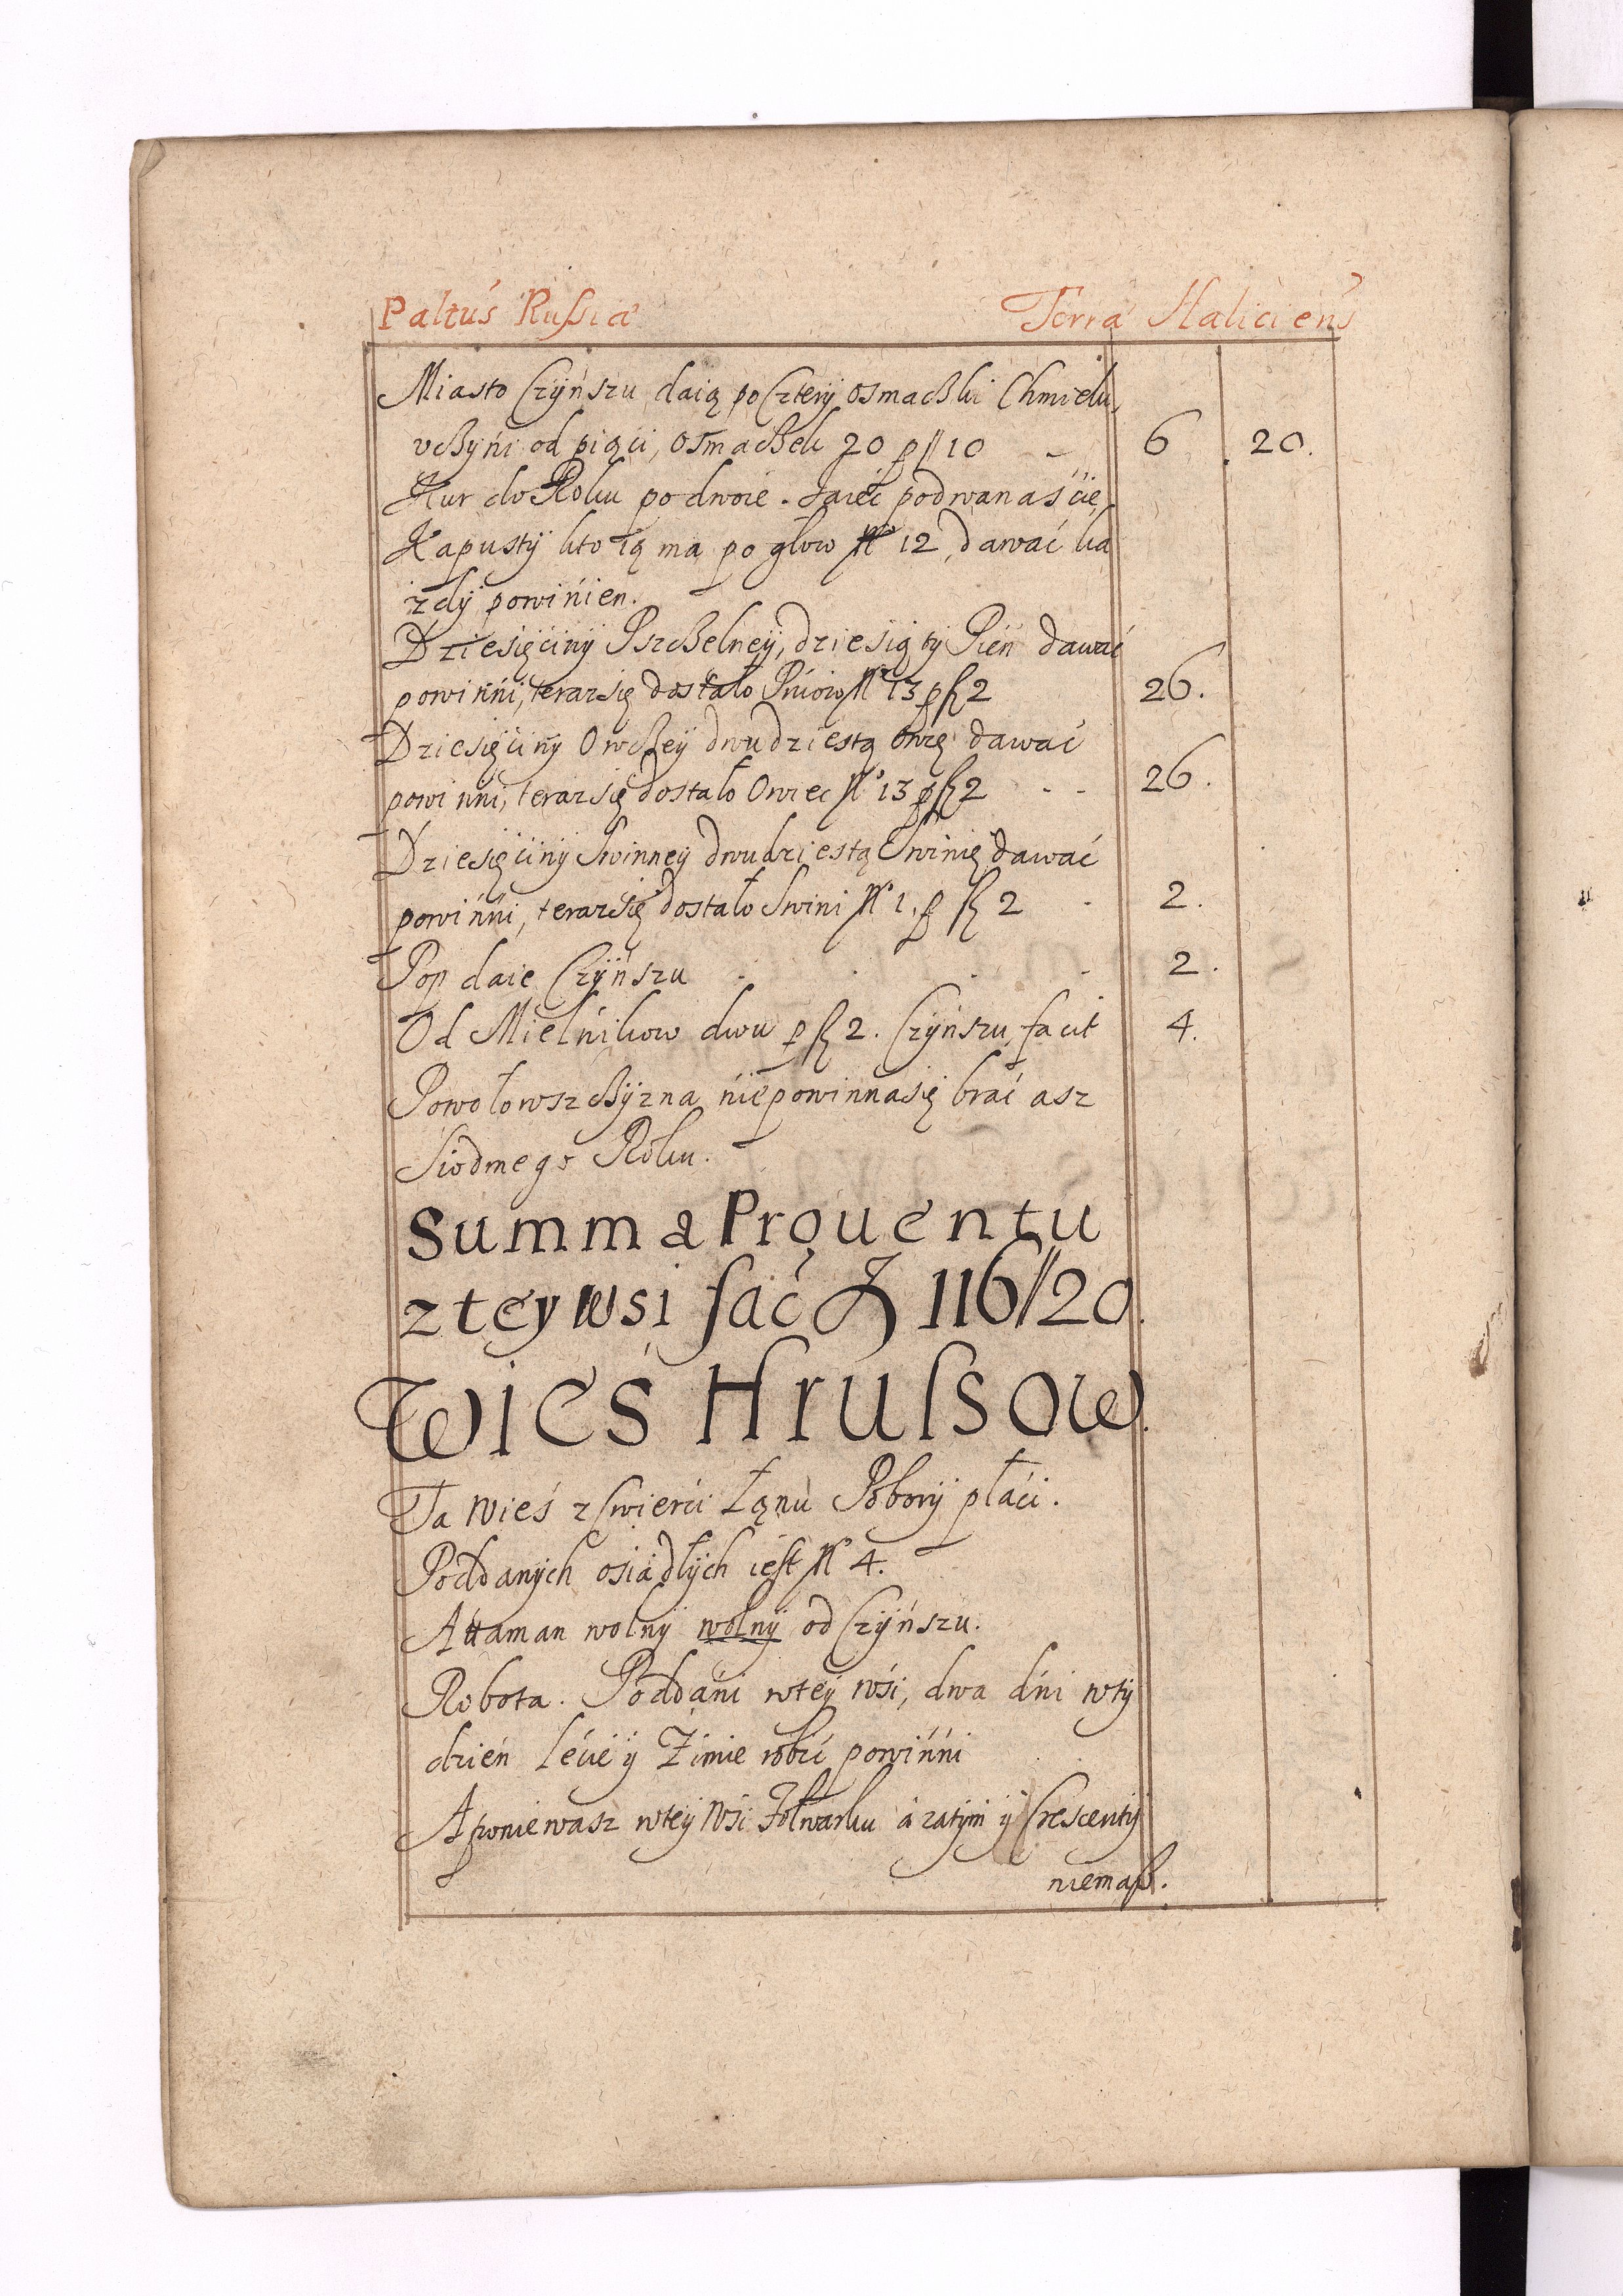 Paltús Russiæ Terra Haliciens
Miasto Czÿnszu daią po Czterÿ osmaczki Chmielu,
vczÿni od pięci, osmaczek 20 p ſſ 10 6 20.
Kur do Roku po dwoie. Jaiec podwanaście,
Kapustÿ kto ią ma po głow Nº 12, dawać ka
żdÿ powinien.
Dziesięcinÿ Pszczelneÿ, dziesiątÿ Pień dawać
powinni, teraz się dostało Pniow Nº 13 p fl 2 26.
Dziesięcinÿ Owczeÿ dwudziestą owcę dawać
powinni, teraz się dostało Owiec Nº 13 p fl 2 26.
Dziesięcinÿ Swinneÿ dwudziestą Swinię dawać
powinni, teraz się dostało Swini Nº 1. p fl 2 2.
Pop daie Czÿnszu 2.
Od Mielnikow dwu p fl 2. Czÿnszu, facit 4.
Powołowszczÿzna niepowinna się brać asz
Siodmego Roku.
Summa Prouentu
z tey wsi fać fl 116 ſſ 20.
Wieś Hrussow.
Ta Wieś z Cwierci Łanu Poborÿ płaći.
Poddanÿch osiadłÿch iest Nº 4.
Attaman wolnÿ wolnÿ od Czÿnszu.
Robota. Poddani wteÿ Wsi, dwa dni wtÿ
dzień Lecie ÿ Zimie robić powinni
A poniewasz wteÿ Wsi Folwarku a zatÿm ÿ Crescentÿ
niemasz.